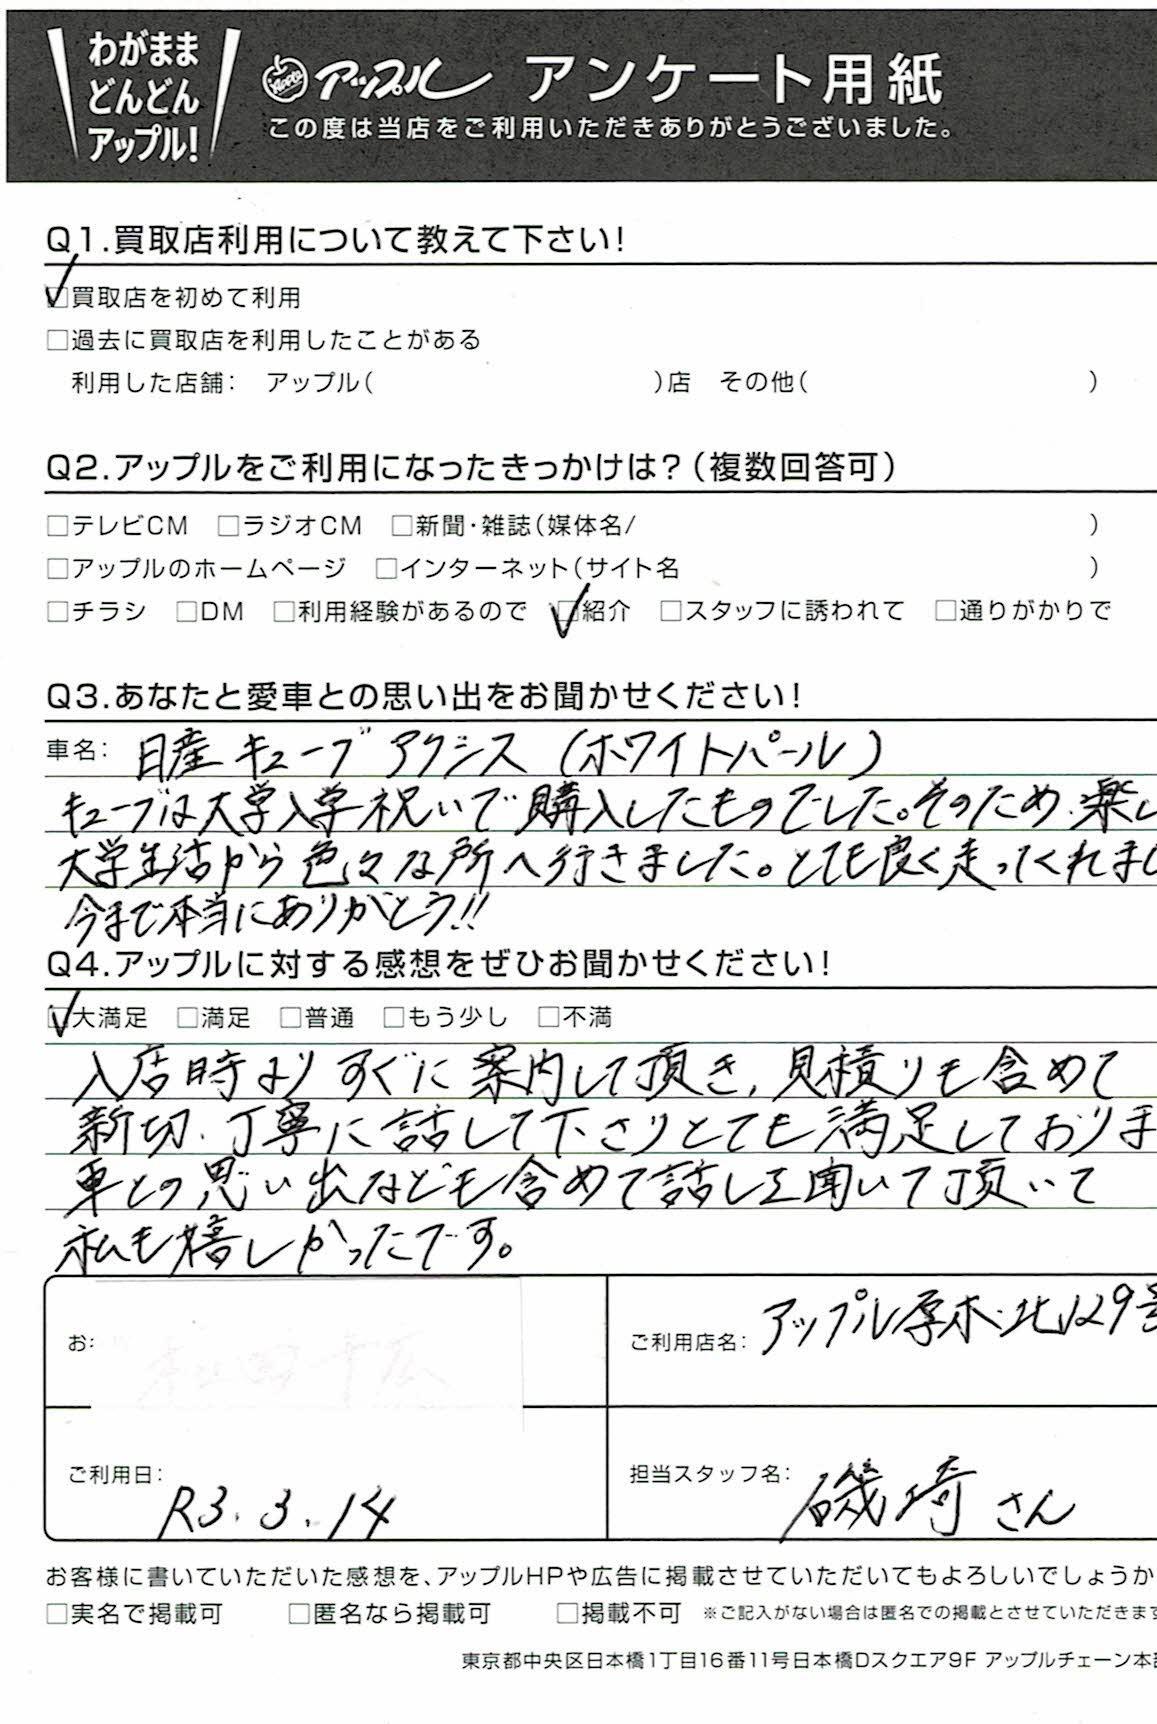 わがまま
どんどん
アップル!
Apple アップル アンケート用紙
この度は当店をご利用いただきありがとうございました。
Q1.買取店利用について教えて下さい!
☑買取店を初めて利用
□過去に買取店を利用したことがある
利用した店舗: アップル( )店 その他( )
Q2.アップルをご利用になったきっかけは?(複数回答可)
□テレビCM □ラジオCM □新聞・雑誌(媒体名/ )
□アップルのホームページ □インターネット(サイト名 )
□チラシ □DM □利用経験があるので ☑紹介 □スタッフに誘われて □通りがかりで
Q3.あなたと愛車との思い出をお聞かせください!
車名: 日産 キューブ アクシス (ホワイトパール)
キューブは大学入学祝いで購入したものでした。そのため、楽し
大学生活から色々な所へ行きました。とても良く走ってくれまし
今まで本当にありがとう!!
Q4.アップルに対する感想をぜひお聞かせください!
☑大満足 □満足 □普通 □もう少し □不満
入店時よりすぐに案内して頂き、見積りも含めて
新切、丁寧に話して下さりとても満足しておりま
車との思い出なども含めて話しを聞いて頂いて
私も嬉しかったです。
お
ご利用店名: アップル厚木北129号
ご利用日: R3.3.14
担当スタッフ名: 磯崎さん
お客様に書いていただいた感想を、アップルHPや広告に掲載させていただいてもよろしいでしょうか
□実名で掲載可 □匿名なら掲載可 □掲載不可 ※ご記入がない場合は匿名での掲載とさせていただきます
東京都中央区日本橋1丁目16番11号日本橋Dスクエア9F アップルチェーン本部